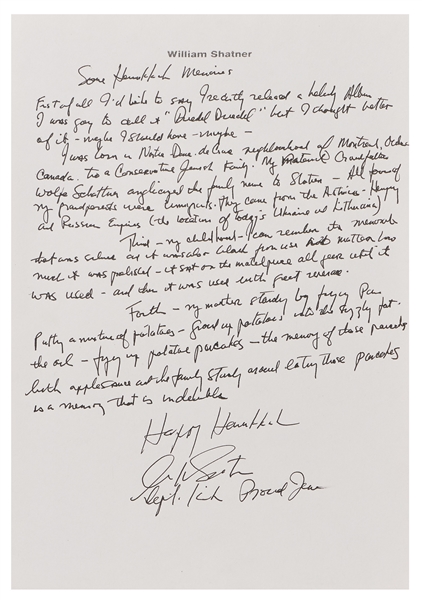 William Shatner
Some Hanukkah Memories
First of all I'd like to say I recently released a holiday Album
I was going to call it "Dreidel Dreidel" but I thought better
of it - maybe I should have - maybe -
I was born in Notre-Dame-de-Grace neighborhood of Montreal,
Canada. to a Conservative Jewish Family. My Paternal Grandfather
Wolfe Schattner anglicized the family name to Shatner - All four of
my Grandparents were immigrants. They came from the Austria - Hungary
and Russian Empires (the location of today's Ukraine and Lithuania)
Third - my childhood - I can remember the menorah
that was silver as it was also black from use no matter how
much it was polished - it sat on the mantelpiece all year until it
was used - and then it was used with great reverence.
Forth - my mother standing by frying Pan
Putting a mixture of potatoes - ground up potatoes into the sizzling fat.
the oil - frying up potatoe pancakes - the memory of those pancakes
with applesauce and the family standing around eating those pancakes
is a memory that is indelible
Happy Hanukkah
Capt. Kirk Proud Jew